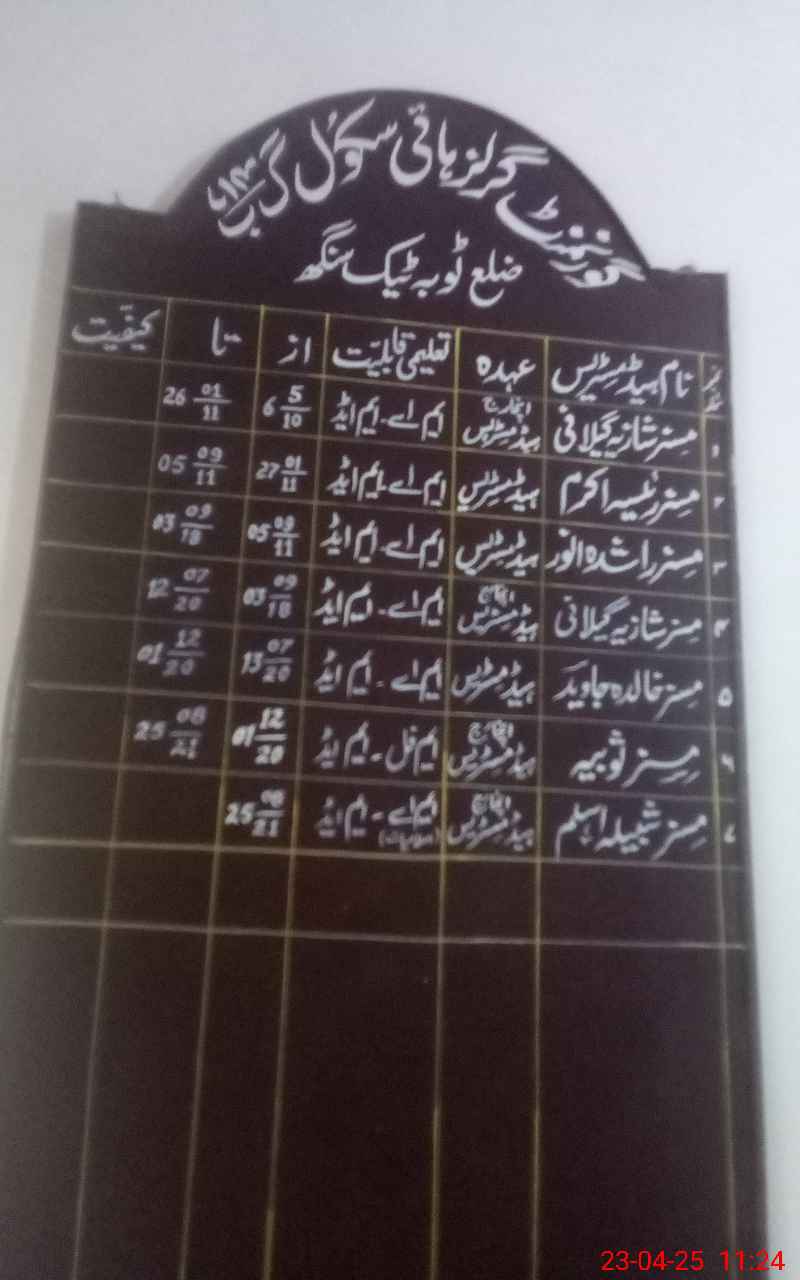 گورنمنٹ گرلز ہائی سکول
ضلع ٹوبہ ٹیک سنگھ
نام ہیڈ مسٹریس عہدہ تعلیمی قابلیت از تا کیفیت
۱ مسز شازیہ گیلانی انچارج ہیڈ مسٹریس ایم اے۔ایم ایڈ 6 5/10 26 01/11
۲ مسز رئیسہ اکرم ہیڈ مسٹریس ایم اے۔ایم ایڈ 27 01/11 05 09/11
۳ مسز راشدہ انور ہیڈ مسٹریس ایم اے۔ایم ایڈ 05 09/11 03 09/18
۴ مسز شازیہ گیلانی انچارج ہیڈ مسٹریس ایم اے۔ایم ایڈ 03 09/18 12 07/20
۵ مسز خالدہ جاوید ہیڈ مسٹریس ایم اے۔ایم ایڈ 13 07/20 01 12/20
۶ مسز ثوبیہ انچارج ہیڈ مسٹریس ایم فل۔ایم ایڈ 01 12/20 25 08/21
۷ مسز شبیلہ اسلم انچارج ہیڈ مسٹریس ایم اے۔ایم ایڈ (اسلامیات) 25 08/21
23-04-25 11:24